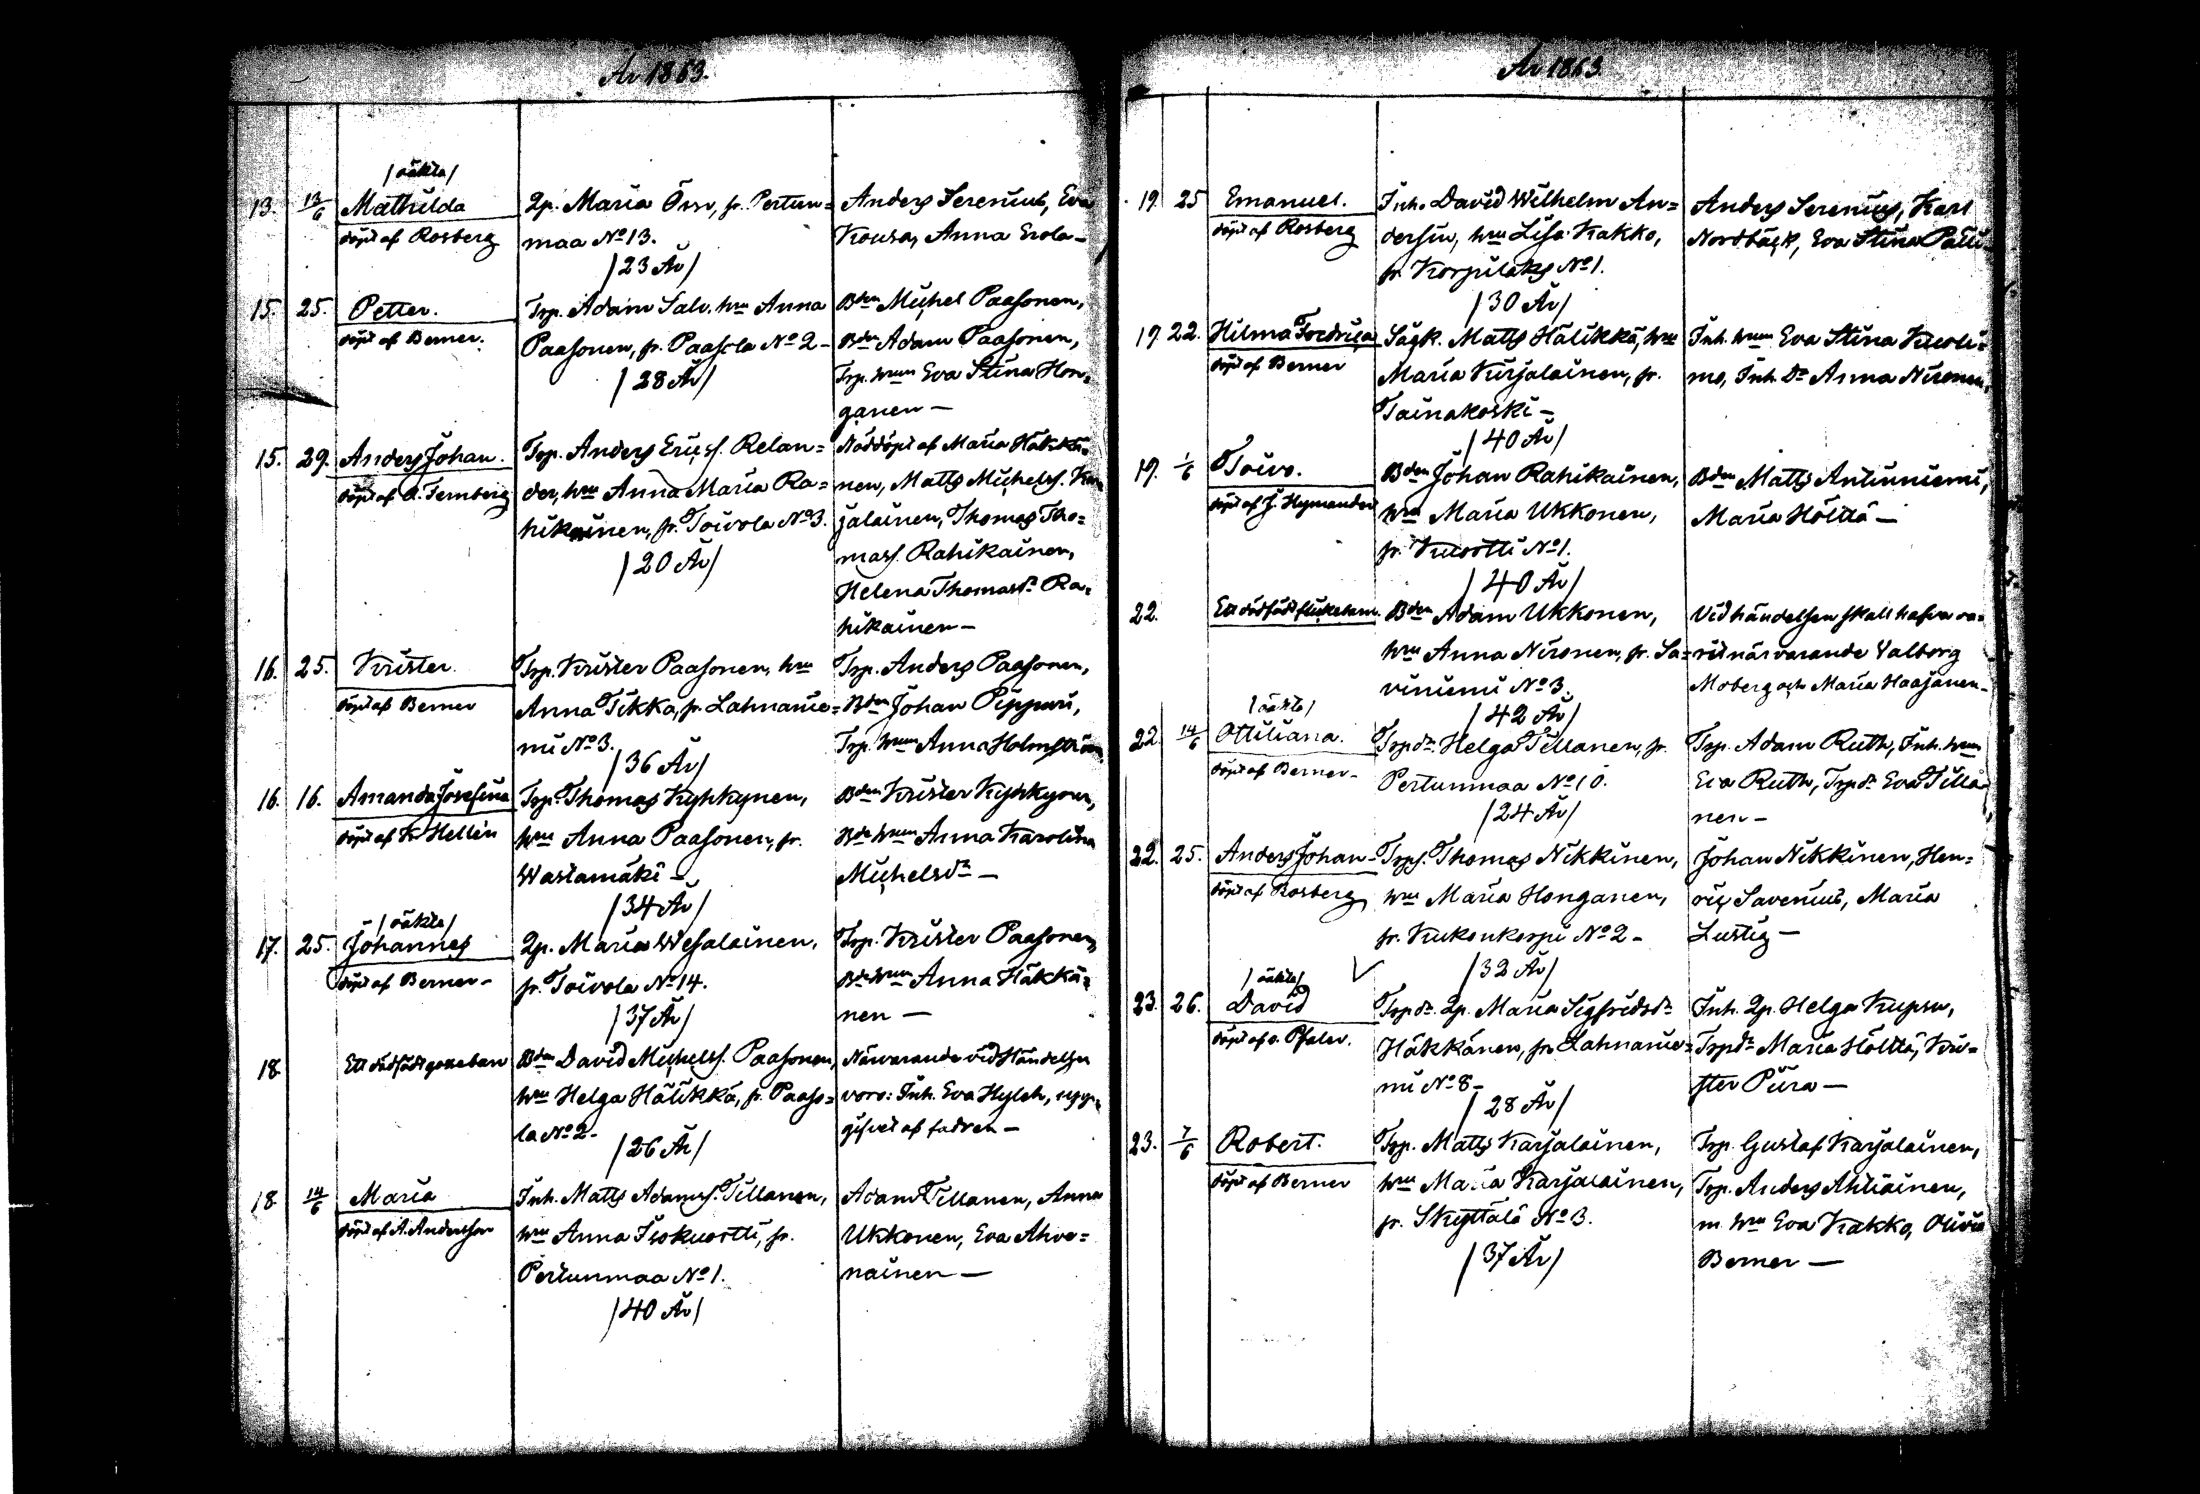 År 1863.
/oäkta/
13. 13/6 Mathilda
döpt af Rosberg
Qp. Maria Örn, fr. Pertun=
maa No 13.
/23 År/
Anders Serenius, Eva
Kousa, Anna Erola—
15. 25. Petter.
döpt af Berner.
Trp. Adam Salv. hru Anna
Paasonen, fr. Paasola No 2—
/28 År/
Bden Michel Paasonen,
Bden Adam Paasonen,
Trp. hrun Eva Stina Hon=
ganen—
15. 29. Anders Johan.
döpt af A. Ternberg
Trp. Anders Ericss. Relan=
der, hru Anna Maria Ra=
hikainen, fr. Toivola No 3.
/20 År/
Nöddöpt af Maria Häkkä=
nen, Matts Michelss. Kar
jalainen, Thomas Tho=
mass. Rahikainen,
Helena Thomasdr Ra=
hikainen—
16. 25. Krister.
döpt af Berner
Trp. Krister Paasonen, hru
Anna Tikka, fr. Lahnanie=
mi No 3.
/36 År/
Trp. Anders Paasonen,
Bden Johan Pippuri,
Trp. hrun Anna Holmström
16. 16. Amanda Josefina
döpt af Kr Hellén
Trp. Thomas Kyhkynen,
hru Anna Paasonen, fr.
Wastamäki—
/34 År/
Bden Krister Kyhkynen,
Bde hrun Anna Karolina
Michelsdr—
/oäkta/
17. 25. Johannes
döpt af Berner—
Qp. Maria Wesalainen,
fr. Toivola No 14.
/37 År/
Trp. Krister Paasonen,
Bde hrun Anna Häkkä=
nen—
18. Ett dödfödt gossebarn
Bden David Michelss. Paasonen,
hru Helga Hälikkä, fr. Paaso=
la No 2—
/26 År/
Närvarande vid händelsen
voro: Inh. Eva Hylch, upp=
gifvet af fadren—
18. 14/6 Maria
döpt af A. Andersson
Inh. Matts Adamss. Tillanen,
hru Anna Isokuortti, fr.
Pertunmaa No 1.
/40 År/
Adam Tillanen, Anna
Ukkonen, Eva Ahve=
nainen—
År 1863.
19. 25 Emanuel.
döpt af Rosberg
Inh. David Wilhelm An=
dersin, hru Lisa Kakko,
fr. Korpilaks No 1.
/30 År/
Anders Serenius, Karl
Nordbäck, Eva Stina Palli—
19. 22. Hilma Fredrica
döpt af Berner
Sågk. Matts Hälikkä, hru
Maria Kirjalainen, fr.
Tainakoski—
/40 År/
Inh. hrun Eva Stina Kuoli=
mo, Inh. Dr Anna Nironen,
19. 1/6 Toivo.
döpt af J. Hymander
Bden Johan Rahikainen,
hru Maria Ukkonen,
fr. Kuortti No 1.
/40 År/
Bden Matts Anttiniemi,
Maria Hölttä—
22. Ett dödfödt flickebarn.
Bden Adam Ukkonen,
hru Anna Nironen, fr. Sa=
viniemi No 3.
/42 År/
Vid händelsen skall hafva va=
rit närvarande Valborg
Moberg och Maria Haajanen—
/oäkta/
22. 14/6 Ottiliana.
döpt af Berner—
Trpdr. Helga Tillanen, fr.
Pertunmaa No 10.
/24 År/
Trp. Adam Ruth, Inh. hrun
Eva Ruth, Trpdr Eva Tilla
nen—
22. 25. Anders Johan—
döpt af Rosberg
Trps. Thomas Nikkinen,
hru Maria Honganen,
fr. Kukonkorpi No 2—
/32 År/
Johan Nikkinen, Hen=
ric Savenius, Maria
Lustig—
/oäkta/
23. 26. David
döpt af v. Pfaler.
Trpdr. Qp. Maria Sigfridsdr
Häkkänen, fr. Lahnanie=
mi No 8—
/28 År/
Inh. Qp. Helga Kupru,
Trpdr Maria Hölttä, Kri=
ster Piira—
23. 7/6 Robert.
döpt af Berner
Trp. Matts Karjalainen,
hru Maria Karjalainen,
fr. Skyttälä No 3.
/37 År/
Trp. Gustaf Karjalainen,
Trp. Anders Ahtiainen,
m. hru Eva Kakko, Olivia
Berner—